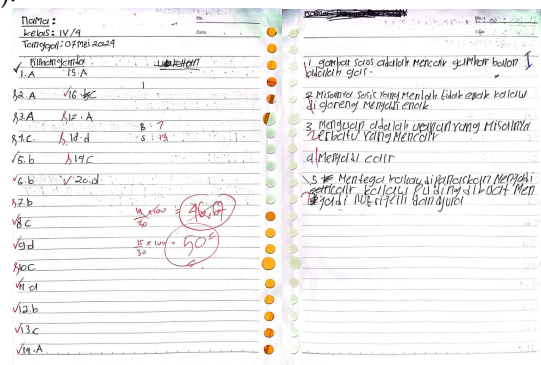 No.
Date
nama :
kelas : IV/A
Tanggal : 07 Mei 2024
Pilihan ganda
1. A 15. A
2. A 16 C
3. A 17. A
4. C 18. d
5. b 19 C
6. b 20. d
7. b
8. C
9. d
10 C
11. d
12. b
13. C
14. A
B : 7
S : 13
x 100 =
15 x 100 = 50
30
1. gambar saos adalah mencair gambar balon
adalah gas.
2. Misalnya sosis yang mentah tidak enak kalau
di goreng menjadi enak
3. Menguap adalah yang misalnya
es batu yang mencair
4. Menjadi cair
5 Mentega kalau dipanaskan menjadi
mencair kalau puding dibuat men
jadi